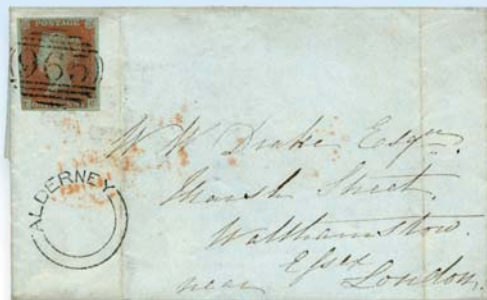 POSTAGE
965
ALDERNEY
W W Drake Esqre.
Marsh Street.
Walthamstow.
Essex
near London.